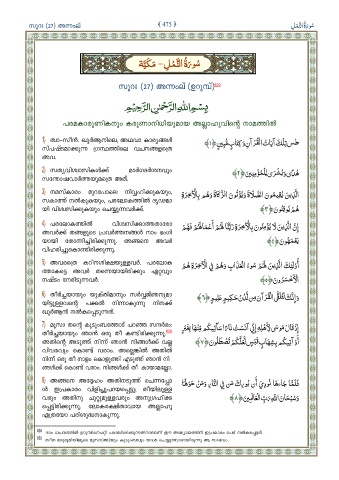 സൂറഃ (27) അന്നംല് ﴾ 475 ﴿ سُورَةُ النَّمْلِ
سُورَةُ النَّمْلِ - مَكِّيَّة
സൂറഃ (27) അന്നംല് (ഉറുമ്പ്)
بِسْمِ اللَّهِ الرَّحْمَٰنِ الرَّحِيمِ
പരമകാരുണികനും കരുണാനിധിയുമായ അല്ലാഹുവിന്റെ നാമത്തിൽ
1) ത്വാ-സീൻ. ഖുർആനിലെ, അഥവാ കാര്യങ്ങൾ
സ്പഷ്ടമാക്കുന്ന ഗ്രന്ഥത്തിലെ വചനങ്ങളത്രെ
അവ.
طس تِلْكَ آيَاتُ الْقُرْآنِ وَكِتَابٍ مُبِينٍ ﴿١﴾
2) സത്യവിശ്വാസികൾക്ക് മാർഗദർശനവും
സന്തോഷവാർത്തയുമത്രെ അത്.
هُدًى وَبُشْرَى لِلْمُؤْمِنِينَ ﴿٢﴾
3) നമസ്കാരം മുറപോലെ നിർവ്വഹിക്കുകയും,
സകാത്ത് നൽകുകയും, പരലോകത്തിൽ ദൃഢമാ
യി വിശ്വസിക്കുകയും ചെയ്യുന്നവർക്ക്.
الَّذِينَ يُقِيمُونَ الصَّلَاةَ وَيُؤْتُونَ الزَّكَاةَ وَهُمْ بِالْآخِرَةِ
هُمْ يُوقِنُونَ ﴿٣﴾
4) പരലോകത്തിൽ വിശ്വസിക്കാത്തതാരോ
അവർക്ക് തങ്ങളുടെ പ്രവർത്തനങ്ങൾ നാം ഭംഗി
യായി തോന്നിച്ചിരിക്കുന്നു. അങ്ങനെ അവർ
വിഹരിച്ചുകൊണ്ടിരിക്കുന്നു.
إِنَّ الَّذِينَ لَا يُؤْمِنُونَ بِالْآخِرَةِ زَيَّنَّا لَهُمْ أَعْمَالَهُمْ فَهُمْ
يَعْمَهُونَ ﴿٤﴾
5) അവരത്രെ കഠിനശിക്ഷയുള്ളവർ. പരലോക
ത്താകട്ടെ അവർ തന്നെയായിരിക്കും ഏറ്റവും
നഷ്ടം നേരിടുന്നവർ.
أُولَئِكَ الَّذِينَ لَهُمْ سُوءُ الْعَذَابِ وَهُمْ فِي الْآخِرَةِ هُمُ
الْأَخْسَرُونَ ﴿٥﴾
6) തീർച്ചയായും യുക്തിമാനും സർവ്വജ്ഞനുമാ
യിട്ടുള്ളവന്റെ പക്കൽ നിന്നാകുന്നു നിനക്ക്
ഖുർആൻ നൽകപ്പെടുന്നത്.
وَإِنَّكَ لَتُلَقَّى الْقُرْآنَ مِنْ لَدُنْ حَكِيمٍ عَلِيمٍ ﴿٦﴾
7) മൂസാ തന്റെ കുടുംബത്തോട് പറഞ്ഞ സന്ദർഭം:
തീർച്ചയായും ഞാൻ ഒരു തീ കണ്ടിരിക്കുന്നു.
അതിന്റെ അടുത്ത് നിന്ന് ഞാൻ നിങ്ങൾക്ക് വല്ല
വിവരവും കൊണ്ട് വരാം. അല്ലെങ്കിൽ അതിൽ
നിന്ന് ഒരു തീ നാളം കൊളുത്തി എടുത്ത് ഞാൻ നി
ങ്ങൾക്ക് കൊണ്ട് വരാം. നിങ്ങൾക്ക് തീ കായാമല്ലോ.
إِذْ قَالَ مُوسَى لِأَهْلِهِ إِنِّي آنَسْتُ نَارًا سَآتِيكُمْ مِنْهَا بِخَبَرٍ
أَوْ آتِيكُمْ بِشِهَابٍ قَبَسٍ لَعَلَّكُمْ تَصْطَلُونَ ﴿٧﴾
8) അങ്ങനെ അദ്ദേഹം അതിനടുത്ത് ചെന്നപ്പോ
ൾ ഇപ്രകാരം വിളിച്ചുപറയപ്പെട്ടു: തീയിലുള്ള
വരും അതിനു ചുറ്റുമുള്ളവരും അനുഗ്രഹിക്ക
പ്പെട്ടിരിക്കുന്നു. ലോകരക്ഷിതാവായ അല്ലാഹു
എത്രയോ പരിശുദ്ധനാകുന്നു.
فَلَمَّا جَاءَهَا نُودِيَ أَنْ بُورِكَ مَنْ فِي النَّارِ وَمَنْ حَوْلَهَا
وَسُبْحَانَ اللَّهِ رَبِّ الْعَالَمِينَ ﴿٨﴾